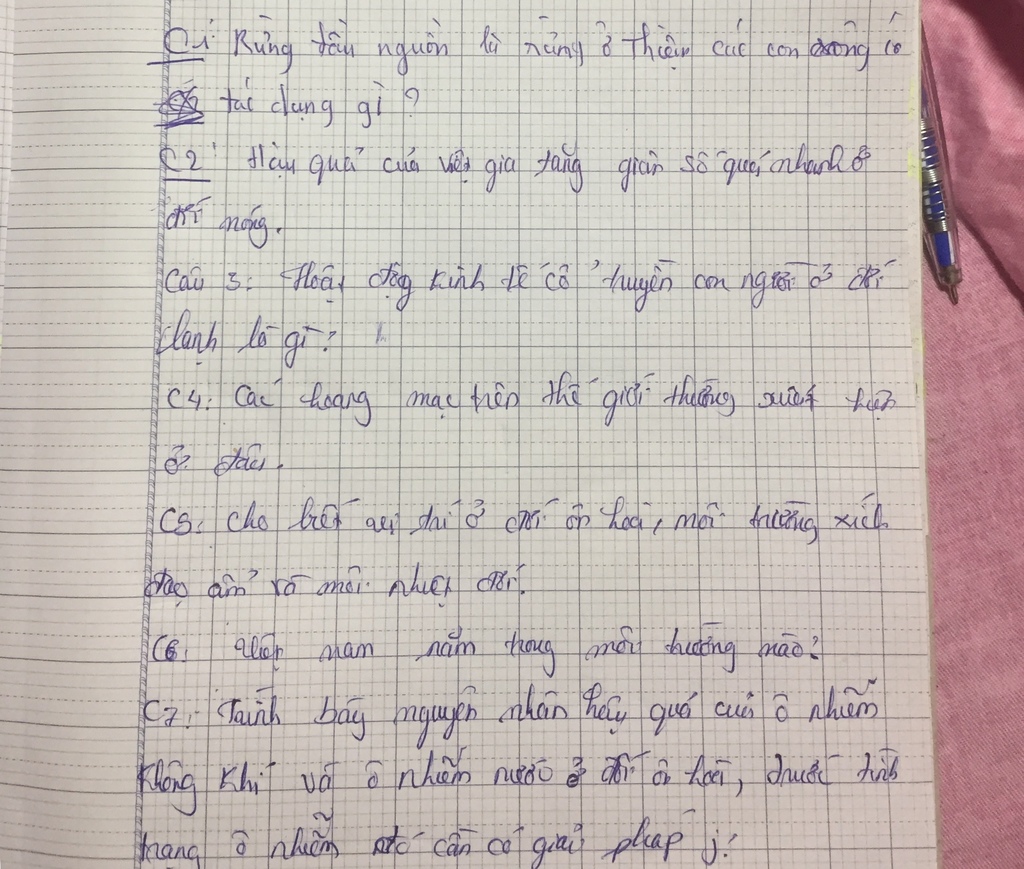 C1: Rừng đầu nguồn là rừng ở thiện các con sông có
tác dụng gì ?
C2: Hậu quả của việc gia tăng giân số quá nhanh ở
đới nóng.
Câu 3: Hoạt động kinh tế cổ truyền con người ở đới
lạnh là gì?
C4: Các hoang mạc trên thế giới thường xuất hiện
ở đâu.
C5: Cho biết vị trí ở đới ôn hoà, môi trường xích
đạo ẩm và môi nhiệt đới.
C6: Việt nam nằm trong môi trường nào?
C7: Trình bày nguyên nhân hậu quả của ô nhiễm
không khí và ô nhiễm nước ở đới ôn hoà, trước tình
trạng ô nhiễm đó cần có giải pháp j?